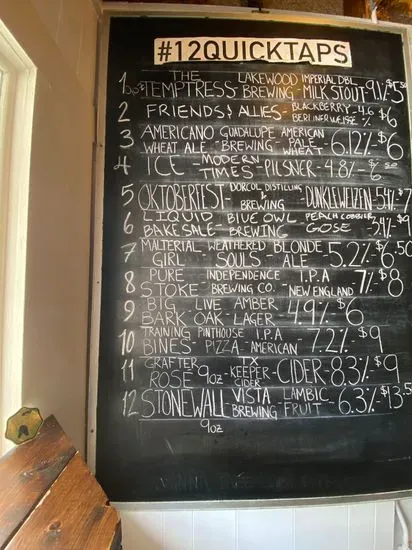 #12QUICKTAPS
1 THE TEMPTRESS - LAKEWOOD BREWING - IMPERIAL DBL MILK STOUT - 9.1% $5
2 FRIENDS & ALLIES - BLACKBERRY BERLINER WEISSE - 4.6% $6
3 AMERICANO WHEAT ALE - GUADALUPE BREWING - AMERICAN PALE WHEAT - 6.12% $6
4 ICE - MODERN TIMES - PILSNER - 4.8% - $6.50
5 OKTOBERFEST - DORCOL DISTILLING & BREWING - DUNKLEWEIZEN - 5.4% $7
6 LIQUID BAKE SALE - BLUE OWL BREWING - PEACH COBBLER GOSE - $9
7 MALTERIAL GIRL - WEATHERED SOULS - BLONDE ALE - 5.2% $6.50
8 PURE STOKE - INDEPENDENCE BREWING CO. - I.P.A NEW ENGLAND - 7% $8
9 BIG BARK - LIVE OAK - AMBER LAGER - 4.9% $6
10 TRAINING BINES - PINTHOUSE PIZZA - I.P.A AMERICAN - 7.2% $9
11 GRAFTER ROSE 9oz - TX KEEPER CIDER - CIDER - 8.3% $9
12 STONEWALL - VISTA BREWING - LAMBIC FRUIT - 6.3% $13.5
9oz